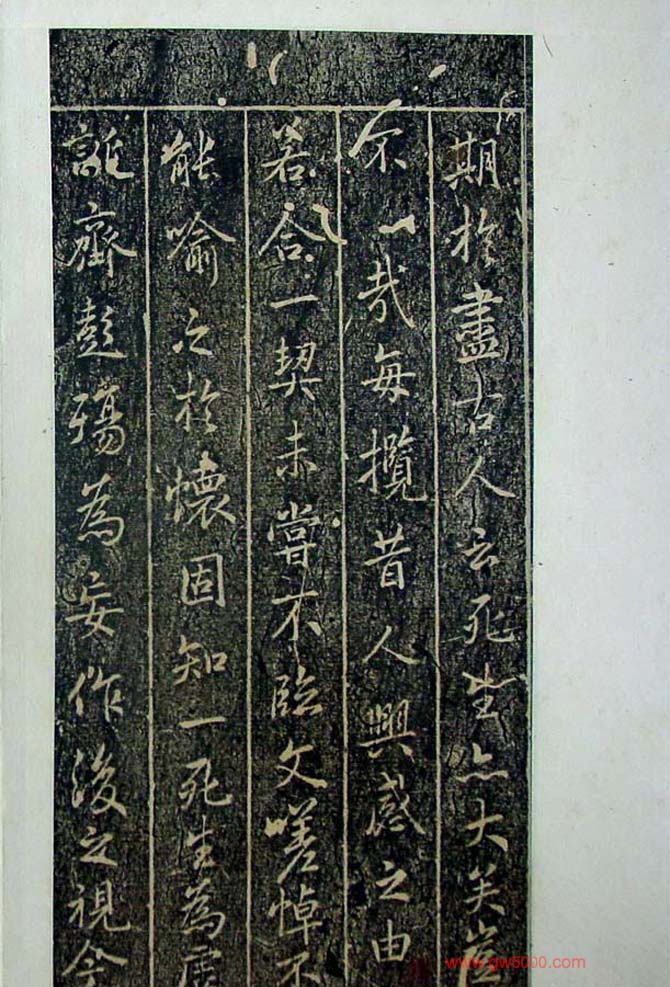 期於盡古人云死生亦大矣豈
不哉每攬昔人興感之由
若合一契未嘗不臨文嗟悼不
能喻之於懷固知一死生為虛
誕齊彭殤為妄作後之視今
www.gw8000.com